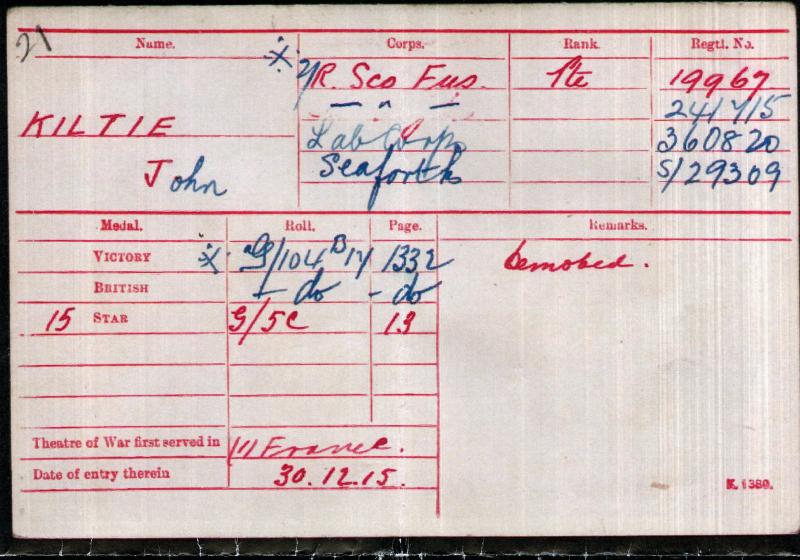 21
Name. Corps. Rank. Regtl. No.
2/R. Sco Fus. Pte 19967
— " — 241715
KILTIE Lab Corps 360820
John Seaforth S/29309
Medal. Roll. Page. Remarks.
VICTORY G/104 B14 1332 Demobed.
BRITISH - do - do
15 STAR G/5C 13
Theatre of War first served in (1) France.
Date of entry therein 30.12.15.
K. 1380.